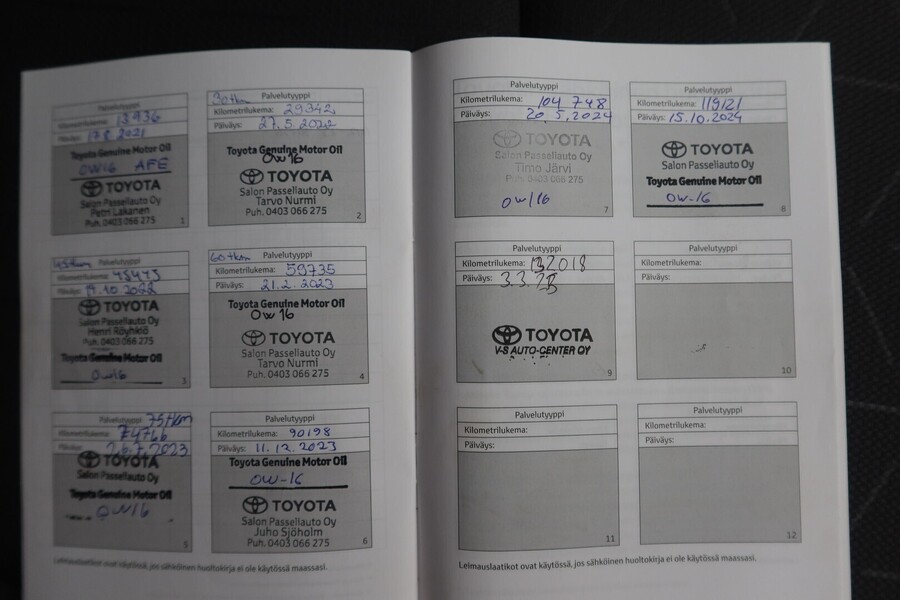 Kilometrilukema: 13936
Päiväys: 17.8.2021
Toyota Genuine Motor Oil
OW16 AFE
TOYOTA
Salon Passeliauto Oy
Petri Lakanen
Puh. 0403 066 275
1
30tkm
Palvelutyyppi
Kilometrilukema: 29342
Päiväys: 27.5.2022
Toyota Genuine Motor Oil
OW16
TOYOTA
Salon Passeliauto Oy
Tarvo Nurmi
Puh. 0403 066 275
2
45tkm Palvelutyyppi
Kilometrilukema: 45473
Päiväys: 19.10.2022
TOYOTA
Salon Passeliauto Oy
Henri Röyhkiö
Puh. 0403 066 275
Toyota Genuine Motor Oil
OW16
3
60tkm Palvelutyyppi
Kilometrilukema: 59735
Päiväys: 21.2.2023
Toyota Genuine Motor Oil
OW16
TOYOTA
Salon Passeliauto Oy
Tarvo Nurmi
Puh. 0403 066 275
4
Palvelutyyppi 75tkm
Kilometrilukema: 74766
Päiväys: 26.7.2023
TOYOTA
Salon Passeliauto Oy
Toyota Genuine Motor Oil
OW16
5
Palvelutyyppi
Kilometrilukema: 90198
Päiväys: 11.12.2023
Toyota Genuine Motor Oil
OW-16
TOYOTA
Salon Passeliauto Oy
Juho Sjöholm
Puh. 0403 066 275
6
Leimauslaatikot ovat käytössä, jos sähköinen huoltokirja ei ole käytössä maassasi.
Palvelutyyppi
Kilometrilukema: 104 748
Päiväys: 20.5.2024
TOYOTA
Salon Passeliauto Oy
Timo Järvi
Puh. 0403 066 275
OW/16
7
Palvelutyyppi
Kilometrilukema: 119121
Päiväys: 15.10.2024
TOYOTA
Salon Passeliauto Oy
Toyota Genuine Motor Oil
OW-16
8
Palvelutyyppi
Kilometrilukema: 132018
Päiväys: 3.3.25
TOYOTA
V-S AUTO-CENTER OY
9
Palvelutyyppi
Kilometrilukema:
Päiväys:
10
Palvelutyyppi
Kilometrilukema:
Päiväys:
11
Palvelutyyppi
Kilometrilukema:
Päiväys:
12
Leimauslaatikot ovat käytössä, jos sähköinen huoltokirja ei ole käytössä maassasi.